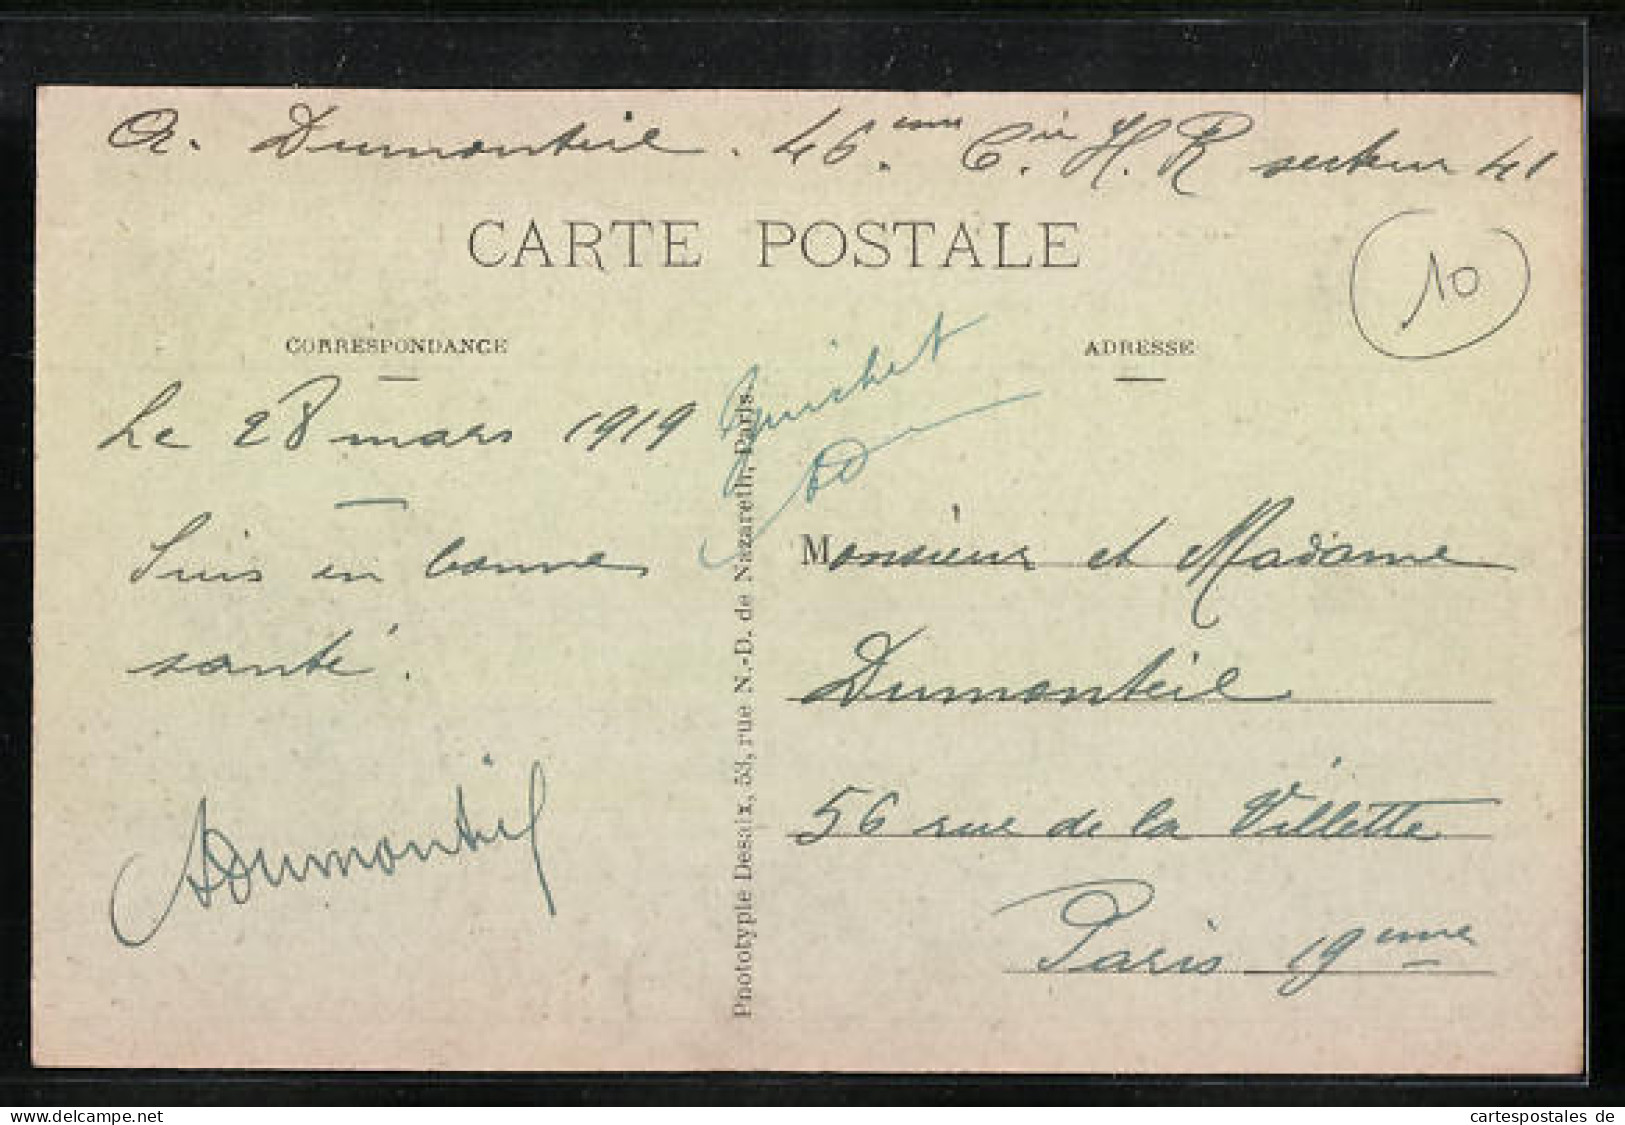 A. Dumonteil. 46.ème C.ie H. R secteur 41
CARTE POSTALE
10
CORRESPONDANCE
ADRESSE
Le 28 mars 1919
Guichet
Suis en bonne
santé.
ADumonteil
Phototypie Desaix, 53, rue N.-D. de Nazareth, Paris.
Monsieur et Madame
Dumonteil
56 rue de la Villette
Paris 19ème
cartespostales de